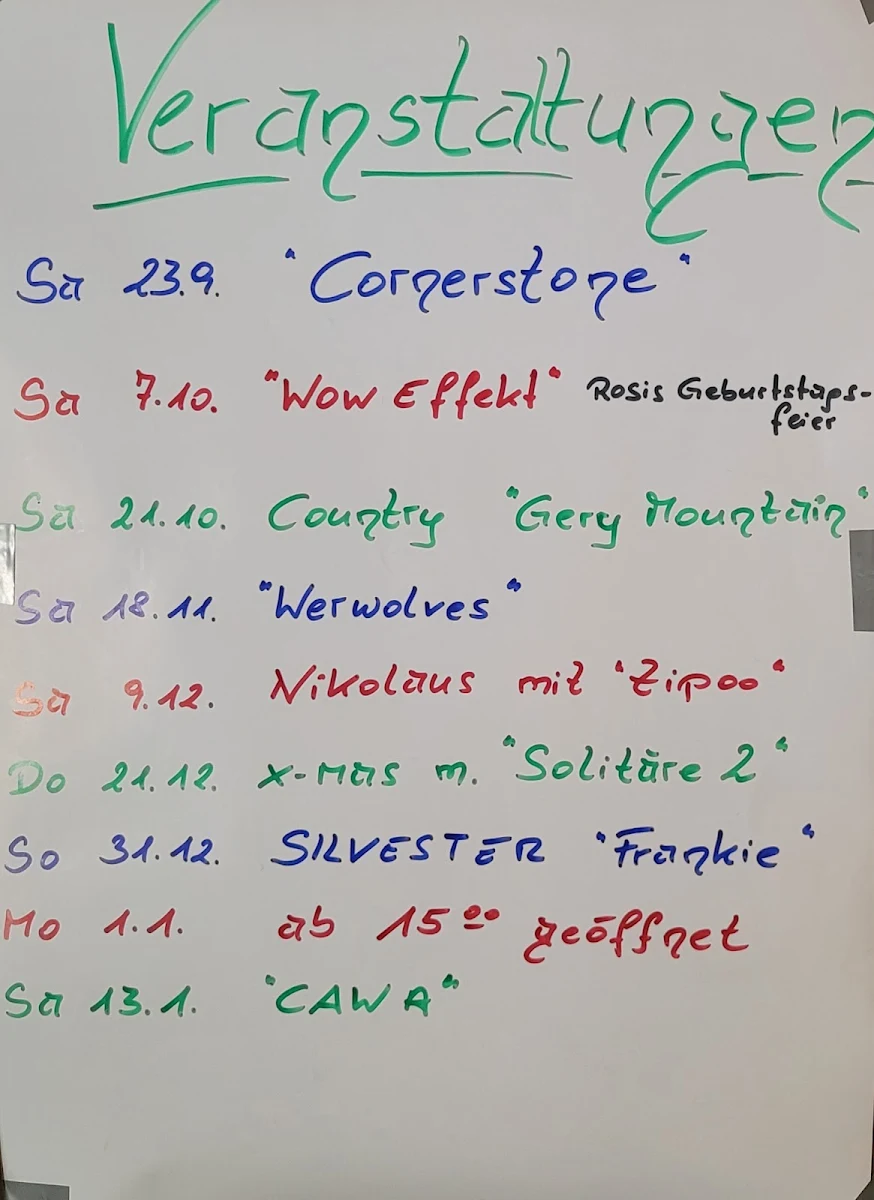 Veranstaltungen
Sa 23.9. "Cornerstone"
Sa 7.10. "Wow Effekt" Rosis Geburtstags-
feier
Sa 21.10. Country "Gery Mountain"
Sa 18.11. "Werwolves"
Sa 9.12. Nikolaus mit "Zipoo"
Do 21.12. X-MAS m. "Solitäre 2"
So 31.12. SILVESTER "Frankie"
Mo 1.1. ab 15⁰⁰ geöffnet
Sa 13.1. "CAWA"